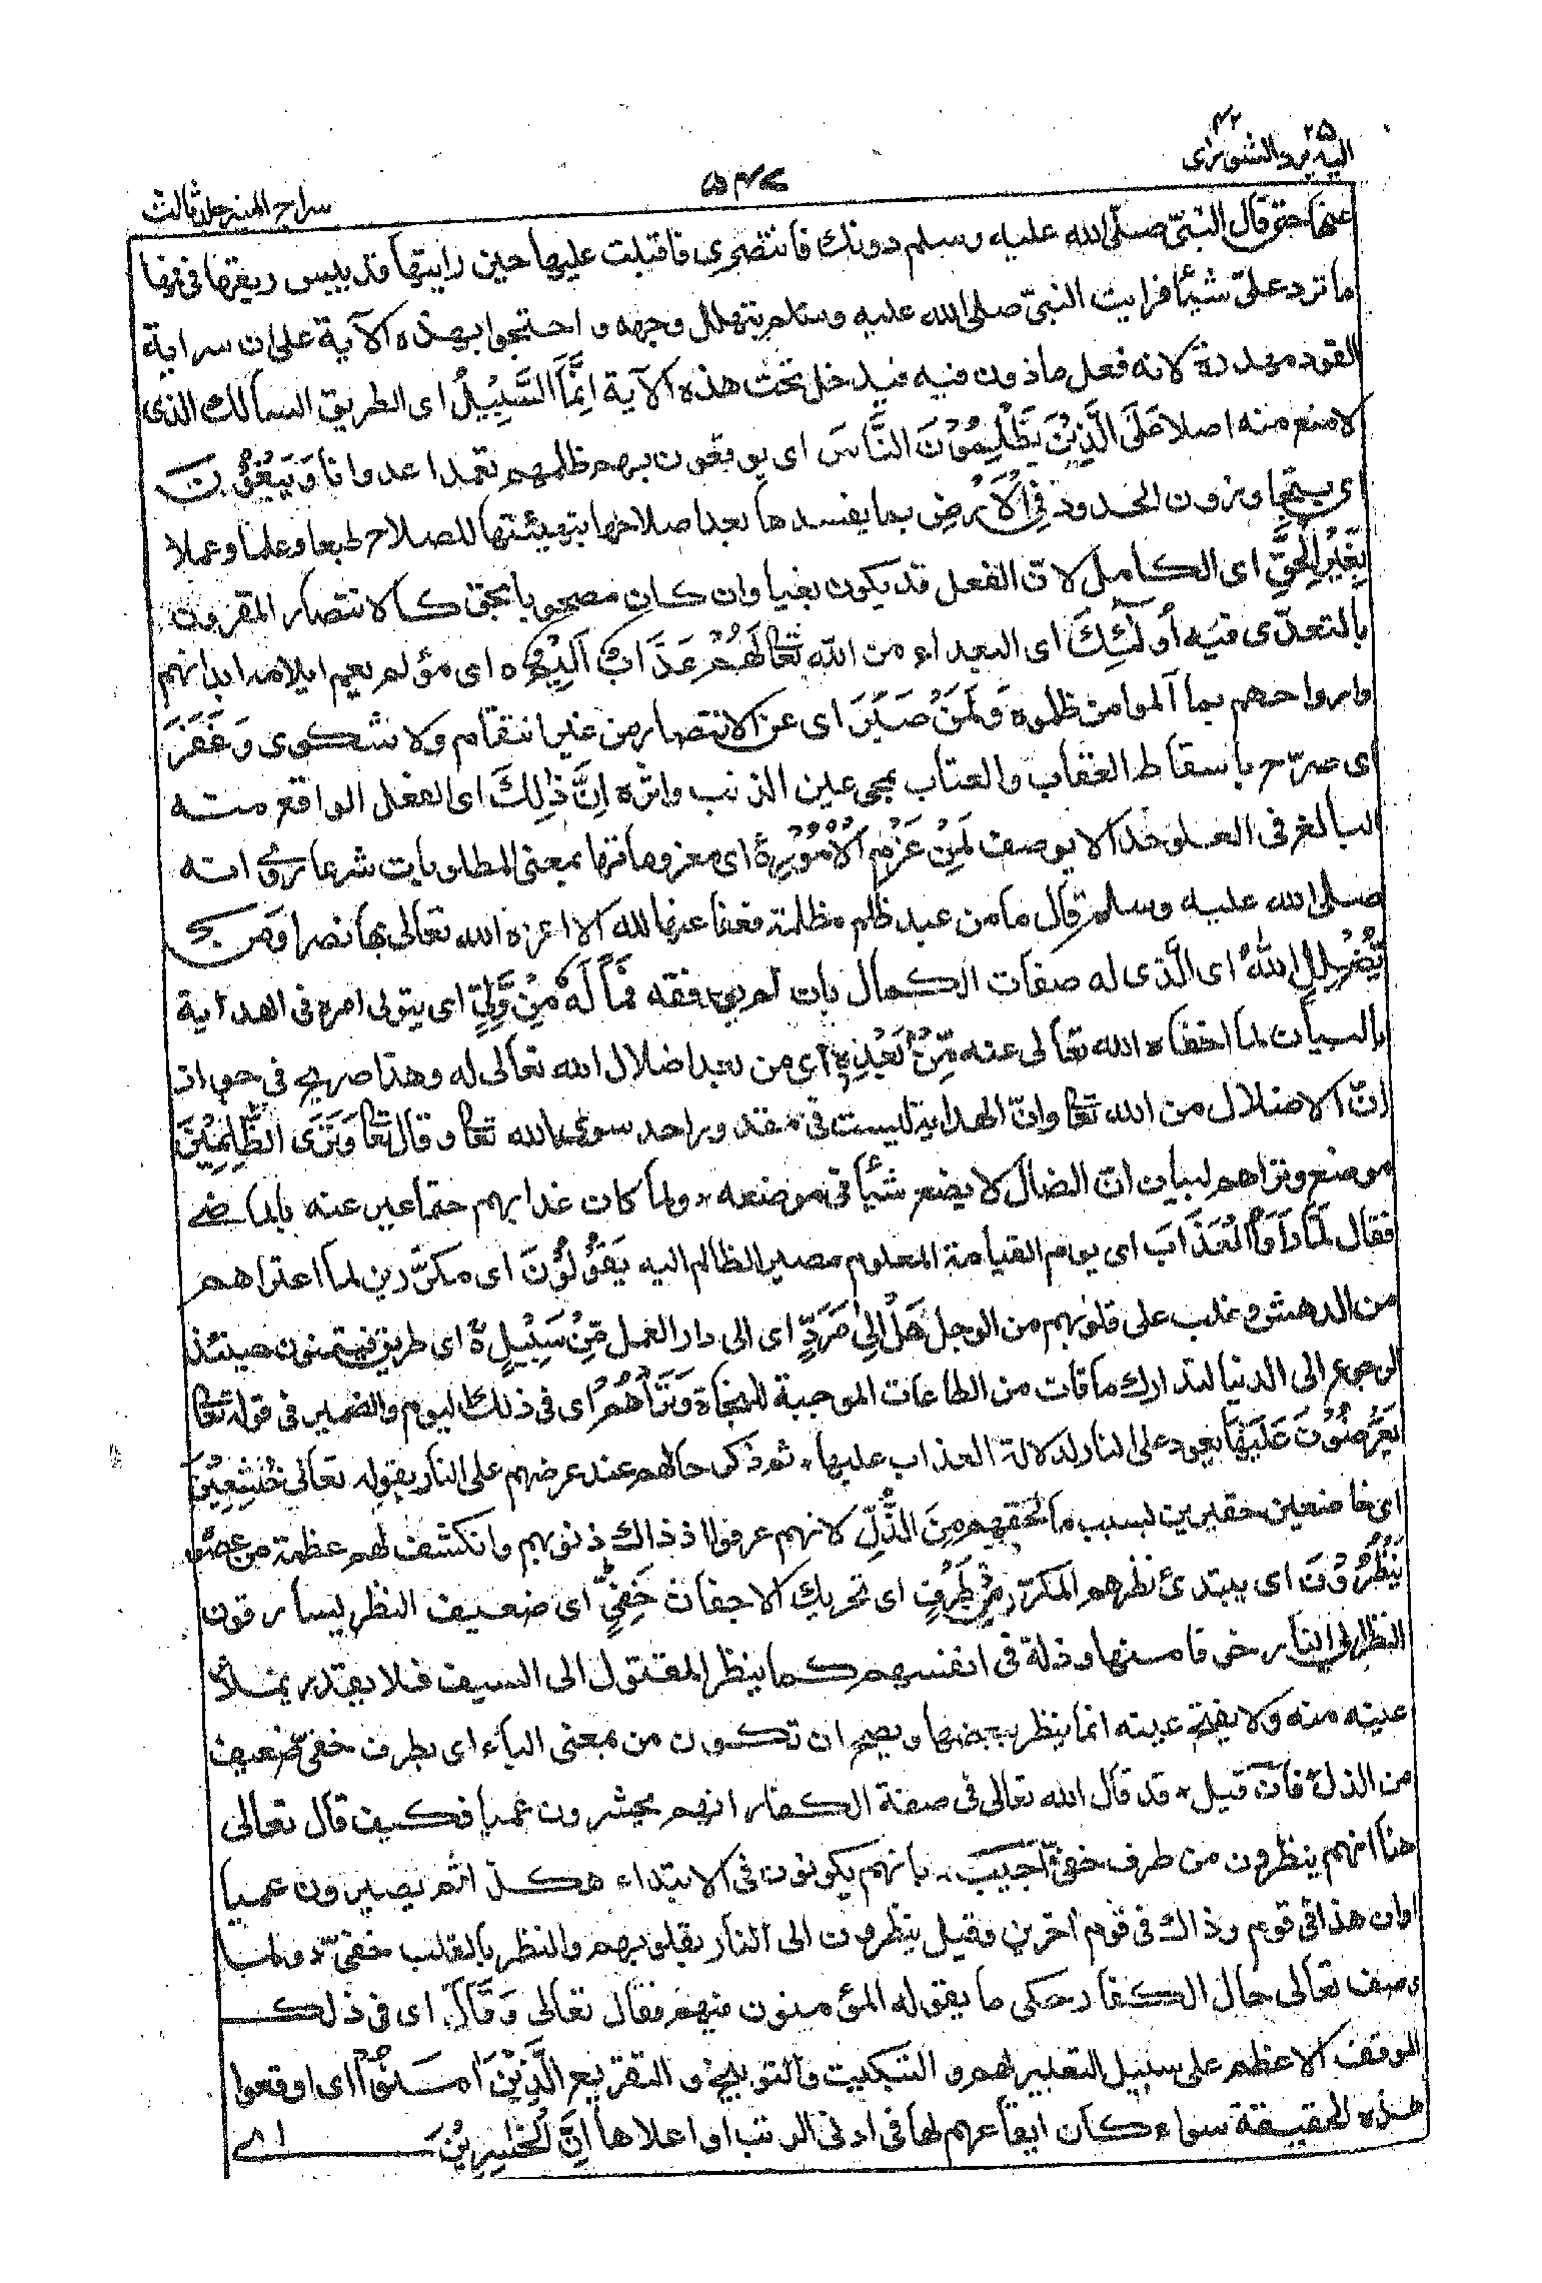 ٢٥ ٤٢
اليه يرد الشورى
٥٤٧
سراج المنير جلد ثالث
عنها حتى قال النبيّ صلى الله عليه وسلم دونك فانتصرى فاقبلت عليها حين رايتها قد يبس ريقها فى فيها
ما ترد علىّ شيئا فرايت النبىّ صلى الله عليه وسلم يتهلل وجهه واحتجوا بهذه الآية على ان سراية
القود مهدرة لانه فعل ماذون فيه فيدخل تحت هذه الآية اِنَّمَا السَّبِيْلُ اى الطريق السالك الذى
لا منع منه اصلا عَلَى الَّذِيْنَ يَظْلِمُوْنَ النَّاسَ اى يوقعون بهم ظلمهم تعمدا عدوانا وَيَبْغُوْنَ
اى يتجاوزون الحدود فِى الْاَرْضِ بما يفسدها بعد اصلاحها بتهيئتها للصلاح طبعا وعلما وعملا
بِغَيْرِ الْحَقِّ اى الكامل لان الفعل قد يكون بغيا وان كان مصحوبا بحق كالانتصار المقرون
بالتعدّى فيه اُولٰٓئِكَ اى البعداء من الله تعالى لَهُمْ عَذَابٌ اَلِيْمٌ ٥ اى مؤلم يعم ايلامه ابدانهم
وارواحهم بما آلموا من ظلموه وَلَمَنْ صَبَرَ اى عن الانتصار من غير انتقام ولا شكوى وَغَفَرَ
اى صرّح باسقاط العقاب والعتاب بمحى عين الذنب واثره اِنَّ ذٰلِكَ اى الفعل الواقع منه
البالغ فى العلو حدا لا يوصف لَمِنْ عَزْمِ الْاُمُوْرِ ٥ اى معزوماتها بمعنى المطلوبات شرعا روى انه
صلى الله عليه وسلم قال ما من عبد ظلم مظلمة فعفا عنها لله الا اعزه الله تعالى بها نصرا وَمَنْ
يُّضْلِلِ اللّٰهُ اى الّذى له صفات الكمال بان لم يوفقه فَمَا لَهٗ مِنْ وَّلِيٍّ اى يتولى امره فى الهداية
بالبيان لما اخفاه الله تعالى عنه مِّنْۢ بَعْدِهٖ اى من بعد اضلال الله تعالى له وهذا صريح فى جواز
انّ الاضلال من الله تعالى وانّ الهداية ليست فى مقدور احد سوى الله تعالى وقال تعالى وَتَرَى الظّٰلِمِيْنَ
موضع وتراهم لبيان انّ الضالّ لا يضع شيئا فى موضعه، ولما كان عذابهم حتما عبر عنه بالماضى
فقال لَمَّا رَاَوُا الْعَذَابَ اى يوم القيامة المعلوم مصير الظالم اليه يَقُوْلُوْنَ اى مكرّرين لما اعتراهم
من الدهش وغلب على قلوبهم من الوجل هَلْ اِلٰى مَرَدٍّ اى الى دار العمل مِّنْ سَبِيْلٍ ٥ اى طريق فيتمنون حينئذ
الرجوع الى الدنيا لتدارك ما فات من الطاعات الموجبة للنجاة وَتَرٰىهُمْ اى فى ذلك اليوم والضمير فى قوله تعالى
يُعْرَضُوْنَ عَلَيْهَا يعود على النار لدلالة العذاب عليها، ثم ذكر حالهم عند عرضهم على النار بقوله تعالى خٰشِعِيْنَ
اى خاضعين حقيرين بسبب ما لحقهم مِنَ الذُّلِّ لانهم عرفوا اذ ذاك ذنوبهم وانكشف لهم عظمة من عصوه
يَنْظُرُوْنَ اى يبتدئ نظرهم المكرّر مِنْ طَرْفٍ اى تحريك الاجفان خَفِيٍّ اى ضعيف النظر يسارقون
النظر الى النار خوفا منها وذلة فى انفسهم كما ينظر المقتول الى السيف فلا يقدر يملأ
عينه منه ولا يفتح عينه انما ينظر ببعضها ويصح ان تكون من بمعنى الباء اى بطرف خفىّ ضعيف
من الذلّ فان قيل، قد قال الله تعالى فى صفة الكفار انهم يحشرون عميا فكيف قال تعالى
هنا انهم ينظرون من طرف خفىّ اجيب، بانهم يكونون فى الابتداء هكذا ثم يصيرون عميا
اوان هذا فى قوم وذاك فى قوم آخرين وقيل ينظرون الى النار بقلوبهم والنظر بالقلب خفىّ، ولما
وصف تعالى حال الكفار حكى ما يقوله المؤمنون فيهم فقال تعالى وَقَالَ اى فى ذلك
الموقف الاعظم على سبيل التعيير لهم والتبكيت والتوبيخ والتقريع الَّذِيْنَ اٰمَنُوْٓا اى اوقعوا
هذه الحقيقة سواء كان ايقاعهم لها فى ادنى الرتب او اعلاها اِنَّ الْخٰسِرِيْنَ اى